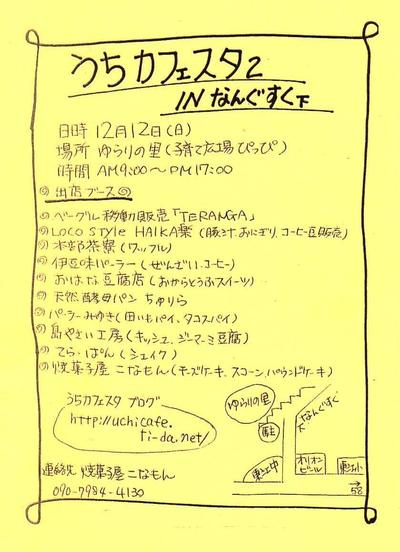 うちカフェスタ2
IN なんぐすく下
日時 12月12日(日)
場所 ゆらりの里(子育て広場ぴっぴ)
時間 AM9:00〜PM17:00
出店ブース
ベーグル移動販売「TERANGA」
LOCO STYLE HAIKA楽(豚汁、おにぎり、コーヒー豆販売)
本部茶寮(ワッフル)
伊豆味パーラー(ぜんざい、コーヒー)
おはな豆腐店(おからとうふスイーツ)
天然酵母パン ちゅりら
パーラーみゆき(田いもパイ、タコスパイ)
島やさい工房(キッシュ、ジーマーミ豆腐)
てら・ぱん(シェイク)
焼菓子屋 こなもん(チーズケーキ、スコーン、パウンドケーキ)
うちカフェスタ ブログ
http://uchicafe.
ti-da.net/
連絡先 焼菓子屋 こなもん
090-7984-4130
ゆらりの里
なんぐすく下
駐
東江中
オリオンビール
東江小
→58